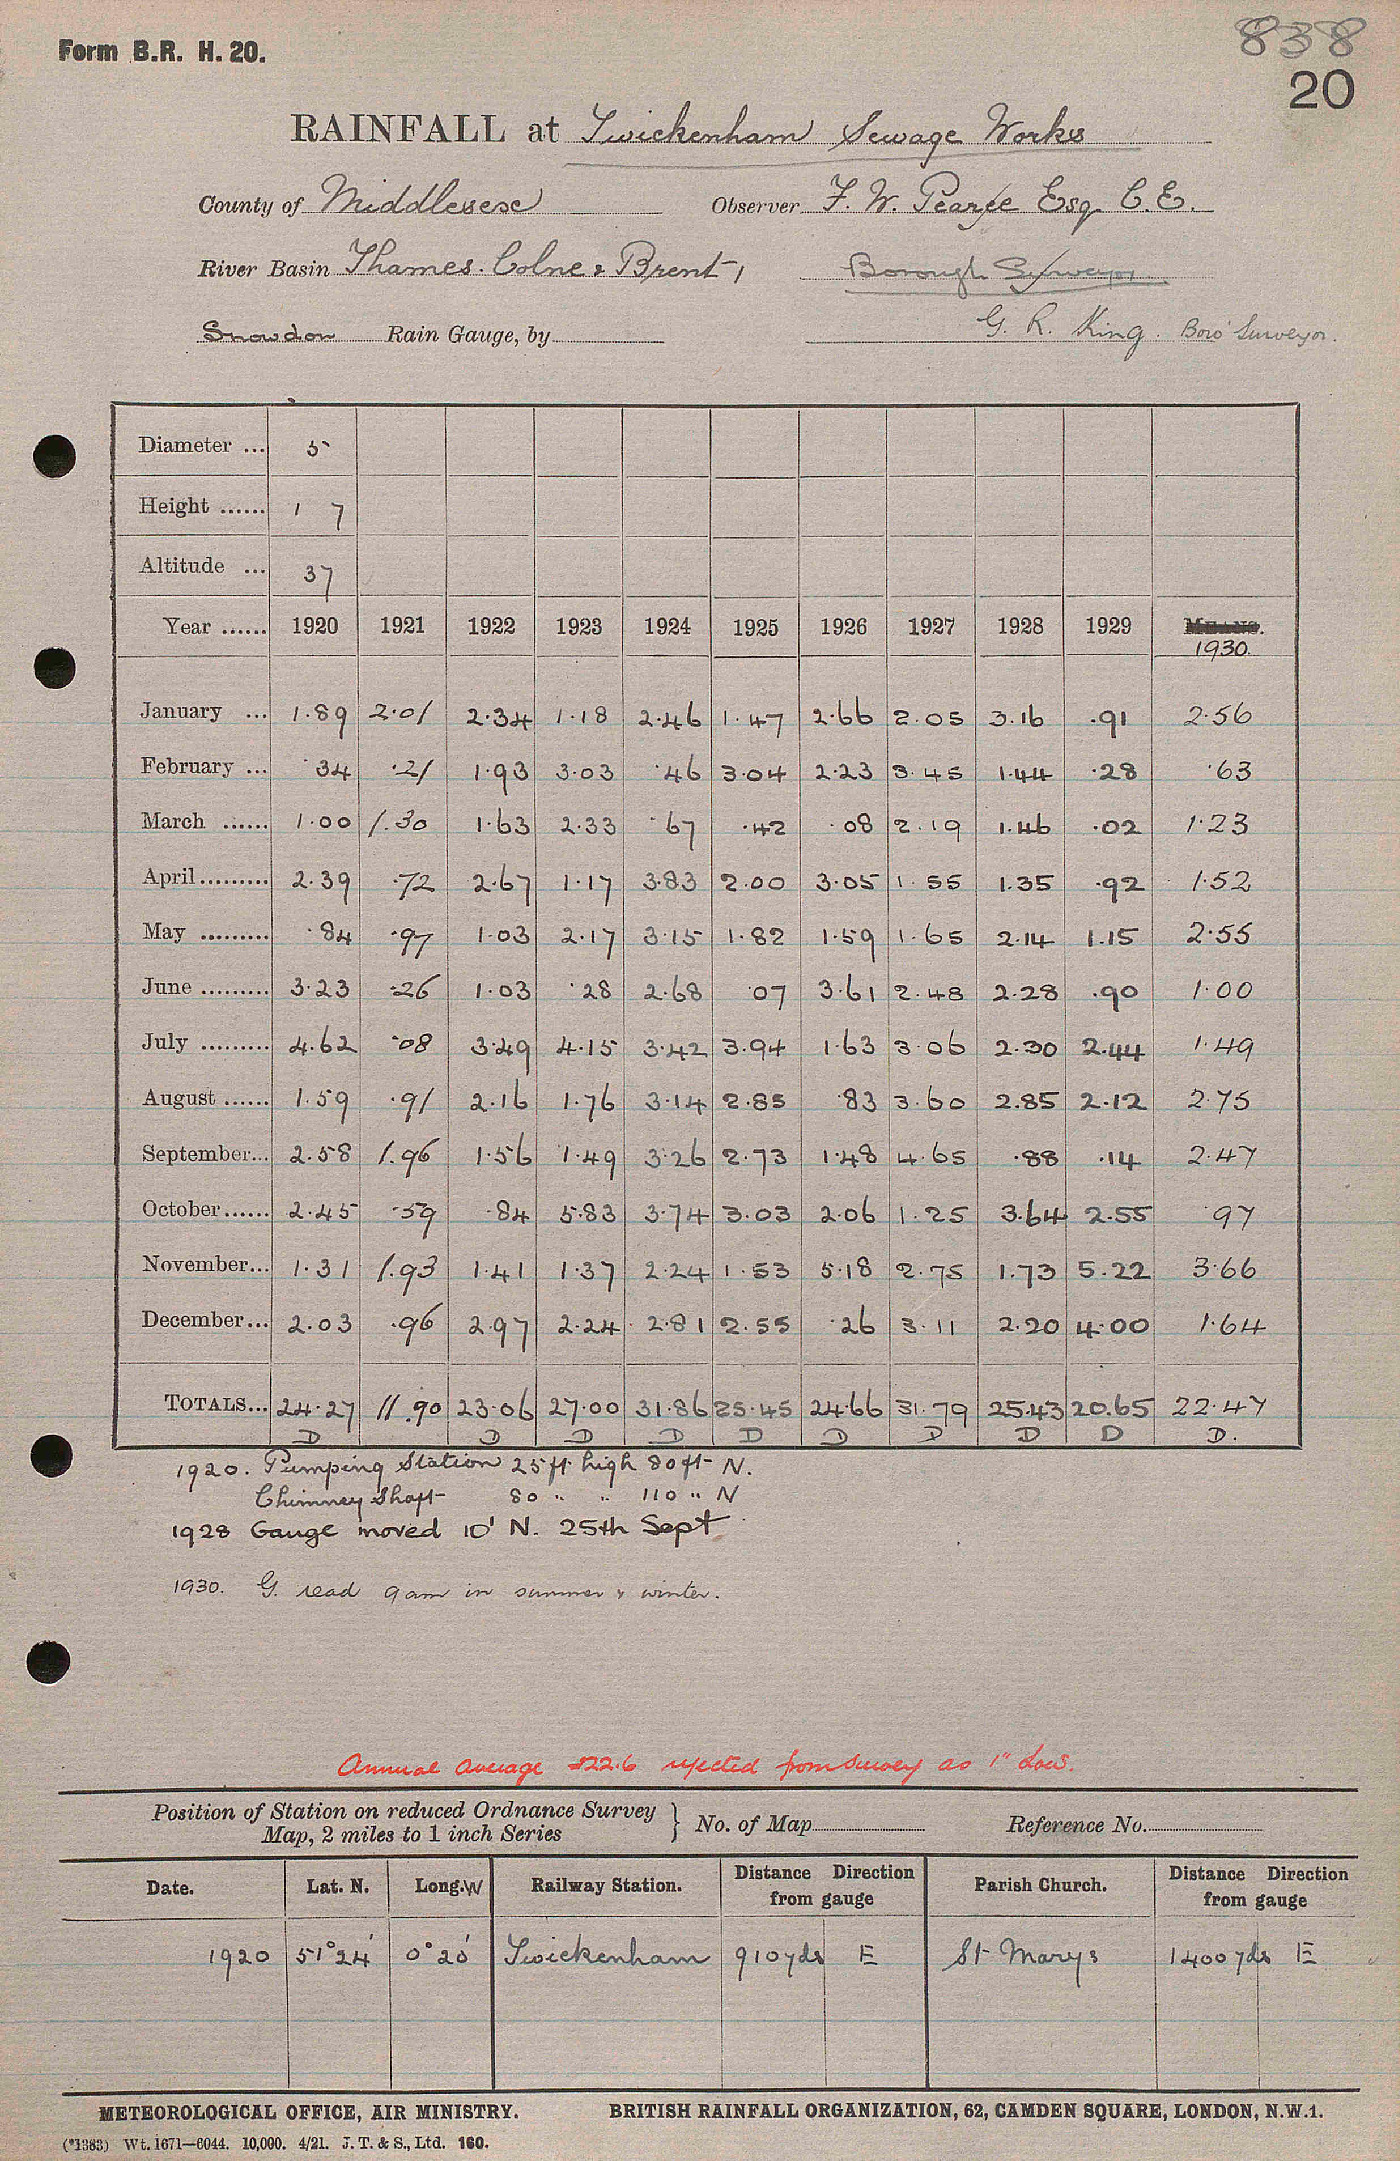 Form B.R. H. 20.
838
20
RAINFALL at Twickenham Sewage Works
County of Middlesex Observer F. W. Pearce Esq C.E.
River Basin Thames. Colne & Brent, Borough Surveyor
Snowdon Rain Gauge, by G. R. King. Boro' Surveyor.
Diameter ... 5
Height ...... 1 7
Altitude ... 37
Year ...... 1920 1921 1922 1923 1924 1925 1926 1927 1928 1929 MEANS.
1930.
January ... 1.89 2.01 2.34 1.18 2.46 1.47 2.66 2.05 3.16 .91 2.56
February ... .34 .21 1.93 3.03 .46 3.04 2.23 3.45 1.44 .28 .63
March ...... 1.00 1.30 1.63 2.33 .67 .42 .08 2.19 1.46 .02 1.23
April ......... 2.39 .72 2.67 1.17 3.83 2.00 3.05 1.55 1.35 .92 1.52
May ......... .84 .97 1.03 2.17 3.15 1.82 1.59 1.65 2.14 1.15 2.55
June ......... 3.23 .26 1.03 .28 2.68 .07 3.61 2.48 2.28 .90 1.00
July ......... 4.62 .08 3.49 4.15 3.42 3.94 1.63 3.06 2.30 2.44 1.49
August ...... 1.59 .91 2.16 1.76 3.14 2.85 .83 3.60 2.85 2.12 2.75
September... 2.58 1.96 1.56 1.49 3.26 2.73 1.48 4.65 .88 .14 2.47
October...... 2.45 .59 .84 5.83 3.74 3.03 2.06 1.25 3.64 2.55 .97
November... 1.31 1.93 1.41 1.37 2.24 1.53 5.18 2.75 1.73 5.22 3.66
December... 2.03 .96 2.97 2.24 2.81 2.55 .26 3.11 2.20 4.00 1.64
TOTALS... 24.27 11.90 23.06 27.00 31.86 25.45 24.66 31.79 25.43 20.65 22.47
D D D D D D D D D D.
1920. Pumping Station 25 ft high 80 ft N.
Chimney Shaft 80 " " 110 " N
1928 Gauge moved 10' N. 25th Sept
1930. G. read 9am in summer & winter.
Annual average 22.6 rejected from survey as 1" low.
Position of Station on reduced Ordnance Survey
Map, 2 miles to 1 inch Series } No. of Map Reference No.
Date. Lat. N. Long. W Railway Station. Distance Direction from gauge Parish Church. Distance Direction from gauge
1920 51° 24' 0° 20' Twickenham 910 yds E St Marys 1400 yds E
METEOROLOGICAL OFFICE, AIR MINISTRY. BRITISH RAINFALL ORGANIZATION, 62, CAMDEN SQUARE, LONDON, N.W.1.
(*1383) Wt. 1671—6044. 10,000. 4/21. J. T. & S., Ltd. 160.